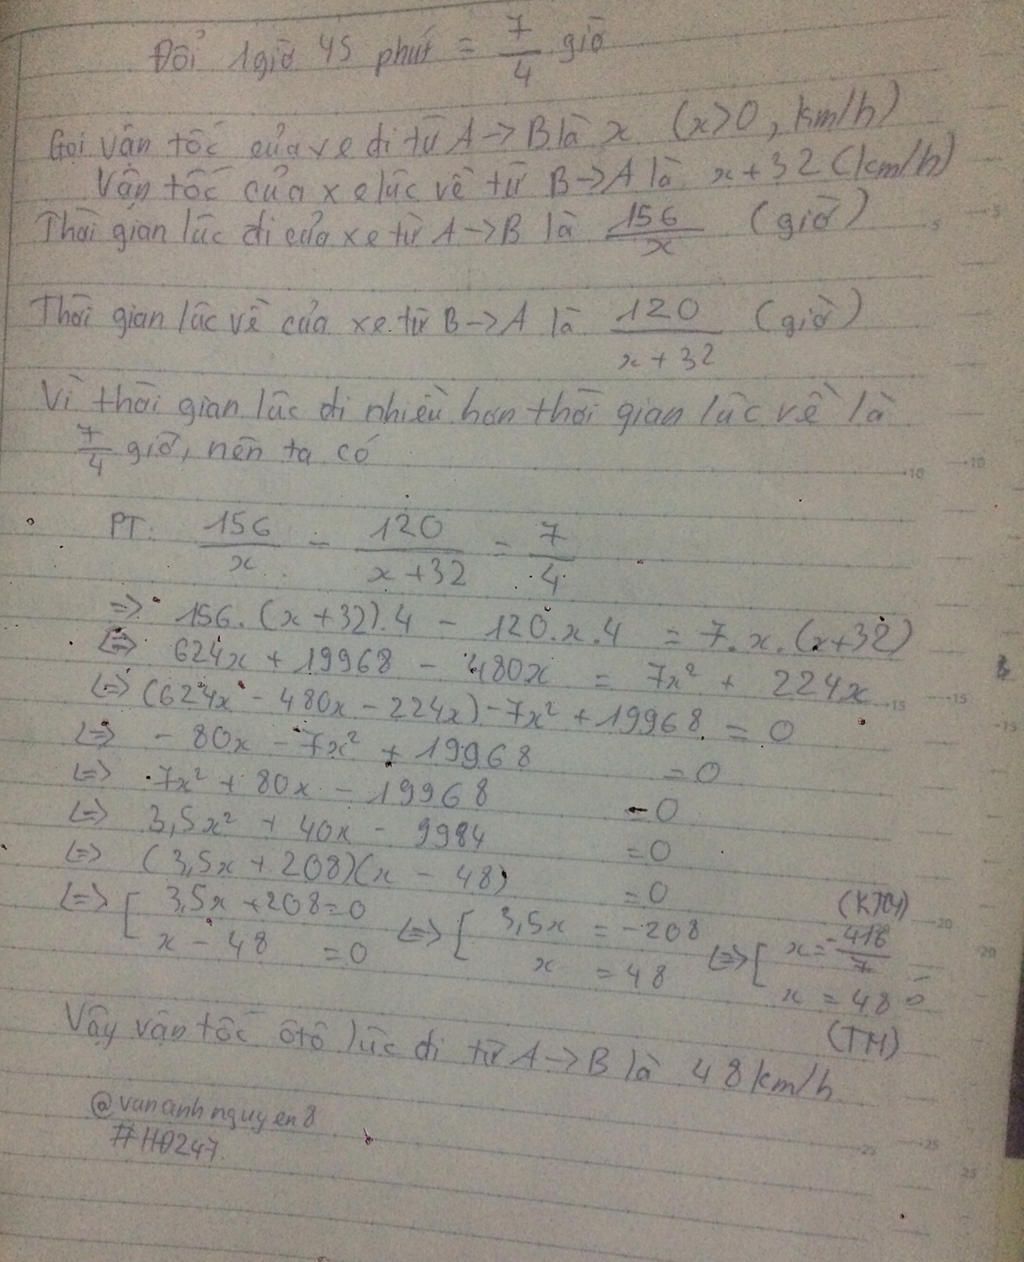 Đổi 1 giờ 45 phút = 7/4 giờ
Gọi vận tốc của xe đi từ A -> B là x (x>0, km/h)
Vận tốc của xe lúc về từ B -> A là x + 32 (km/h)
Thời gian lúc đi của xe từ A -> B là 156/x (giờ)
Thời gian lúc về của xe từ B -> A là 120/(x + 32) (giờ)
Vì thời gian lúc đi nhiều hơn thời gian lúc về là
7/4 giờ, nên ta có
PT: 156/x - 120/(x+32) = 7/4
=> 156.(x+32).4 - 120.x.4 = 7.x.(x+32)
<=> 624x + 19968 - 480x = 7x² + 224x
<=> (624x - 480x - 224x) - 7x² + 19968 = 0
<=> - 80x - 7x² + 19968 = 0
<=> 7x² + 80x - 19968 = 0
<=> 3,5x² + 40x - 9984 = 0
<=> (3,5x + 208)(x - 48) = 0
<=> [ 3,5x + 208 = 0 <=> [ 3,5x = -208 <=> [ x = -416/7 (KTM)
x - 48 = 0 x = 48 x = 48 (TM)
Vậy vận tốc ôtô lúc đi từ A -> B là 48 km/h
@vananhnguyen8
#HĐ247
15
10
15
20
25